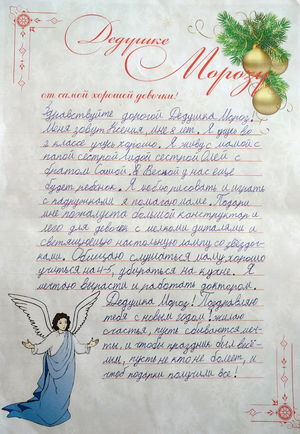 Дедушке
Морозу
от самой хорошей девочки!
Здравствуйте дорогой Дедушка Мороз!
Меня зовут Ксения, мне 8 лет. Я учусь во
2 классе учусь хорошо. Я живу с мамой с
папой сестрой Лидой сестрой Олей с
братом Сашей. А Весной у нас ещё
будет ребёнок. Я люблю рисовать и играть
с подружками я помогаю маме. Подари
мне пожалуйста большой конструктор и
лего для девочек с мелкими диталями и
светящеюю настольную лампу со звёздоч-
ками. Обещаю слушаться маму, хорошо
учиться на 4-5, убираться на кухне. Я
мечтаю вырасти и работать доктором.
Дедушка Мороз! Поздравляю
тебя с новым годом! желаю
счастья, пусть сбываются меч-
ты, и чтобы праздник был весё-
лым, пусть не кто не болеет, и
чтоб подарки получили все!